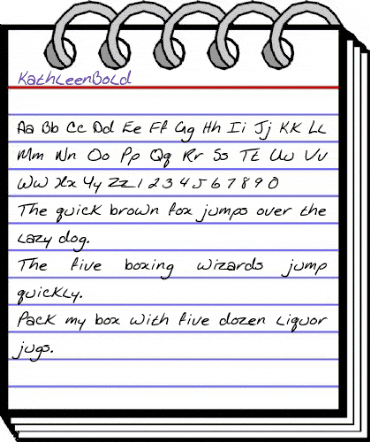 KathleenBold
Aa Bb Cc Dd Ee Ff Gg Hh Ii Jj Kk Ll
Mm Nn Oo Pp Qq Rr Ss Tt Uu Vv
Ww Xx Yy Zz 1 2 3 4 5 6 7 8 9 0
The quick brown fox jumps over the
lazy dog.
The five boxing wizards jump
quickly.
Pack my box with five dozen liquor
jugs.